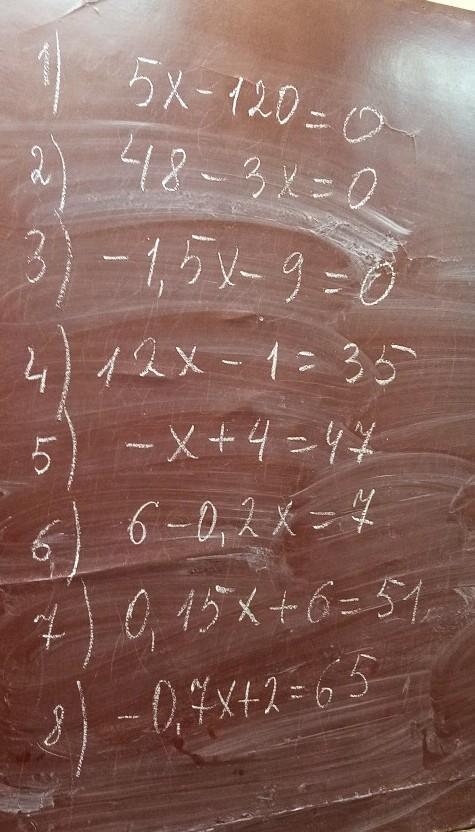 1) 5x-120=0
2) 48-3x=0
3) -1,5x-9=0
4) 12x-1=35
5) -x+4=47
6) 6-0,2x=7
7) 0,15x+6=51
8) -0,7x+2=65